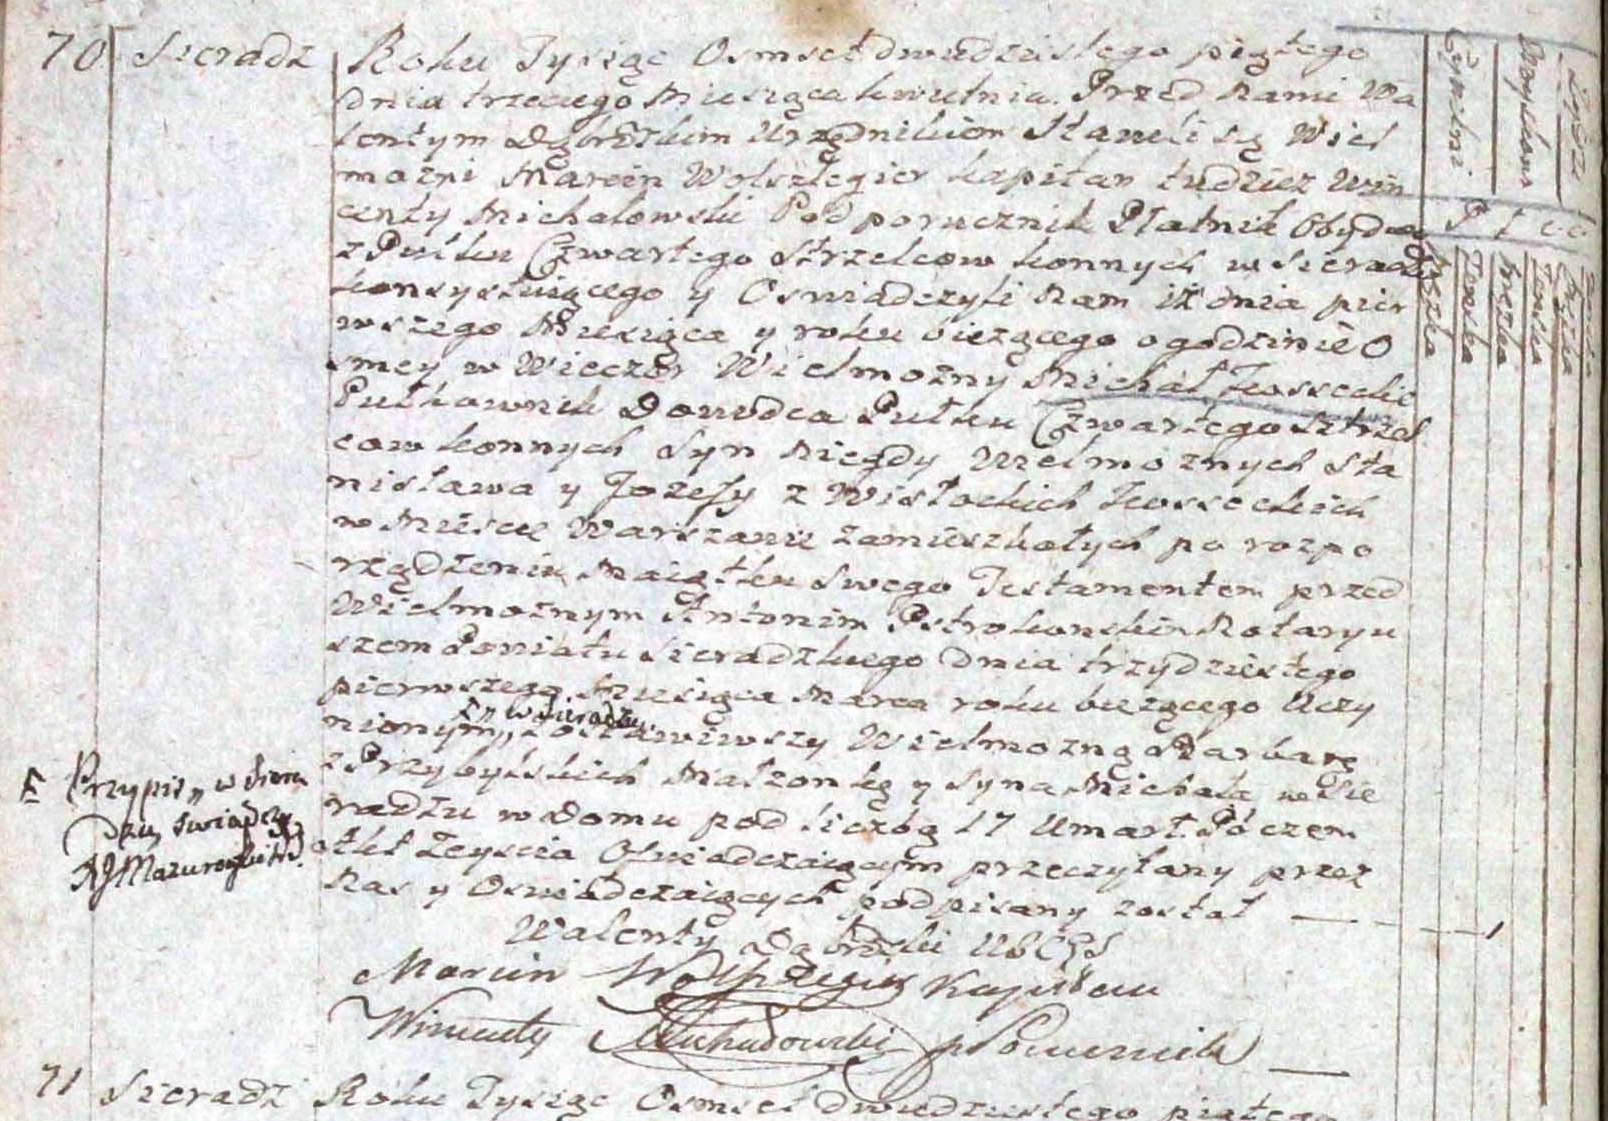 70 Sieradz Roku Tysiąc Osmset dwudziestego piątego
dnia trzeciego Miesiąca kwietnia. Przed Nami Wa
lentym Dąbrozkim Urzędnikiem Stawili się Wiel
mozni Marcin Wolszlegier kapitan tudziez Win
centy Michałowski Podporucznik Płatnik Obydwa
z Pułku Czwartego Strzelcow konnych w Sieradzu
konsystuiącego y Oswiadczyli Nam iż dnia pier
wszego Miesiąca y roku biezącego o godzinie O
smey w Wieczor Wielmożny Michał Kossecki
Pułkownik Dowodca Pułku Czwartego Strzel
cow konnych Syn Niegdy Wielmożnych Sta
nisława y Jozefy z Wisłockich Kosseckich
w Miescie Warszawie zamieszkałych po rozpo
rządzeniu Maiątku swego Testamentem przed
Wielmożnym Antonim Pstrokonskim Rotaryu
szem Powiatu Sieradzkiego dnia trzydziestego
pierwszego Miesiąca Marca roku biezącego Uczy
w Sieradzu
nionym, zostawiwszy Wielmozną Barbarę
z Przybylskich Małzonkę y Syna Michała w Sie
radzu w Domu pod liczbą 17 Umarł. Poczem
akt Zeyscia Oswiadczaiącym przeczytany przez
Nas y Oswiadczaiących podpisany został
Walenty Dąbrozki
Marcin Wolszlegier Kapitan
Wincenty Michałowski pPorucznik
F Przypis „w Siera
dzu„ swiadczą
Mazurowski
71 Sieradz Roku Tysiąc Osmset dwudziestego piątego